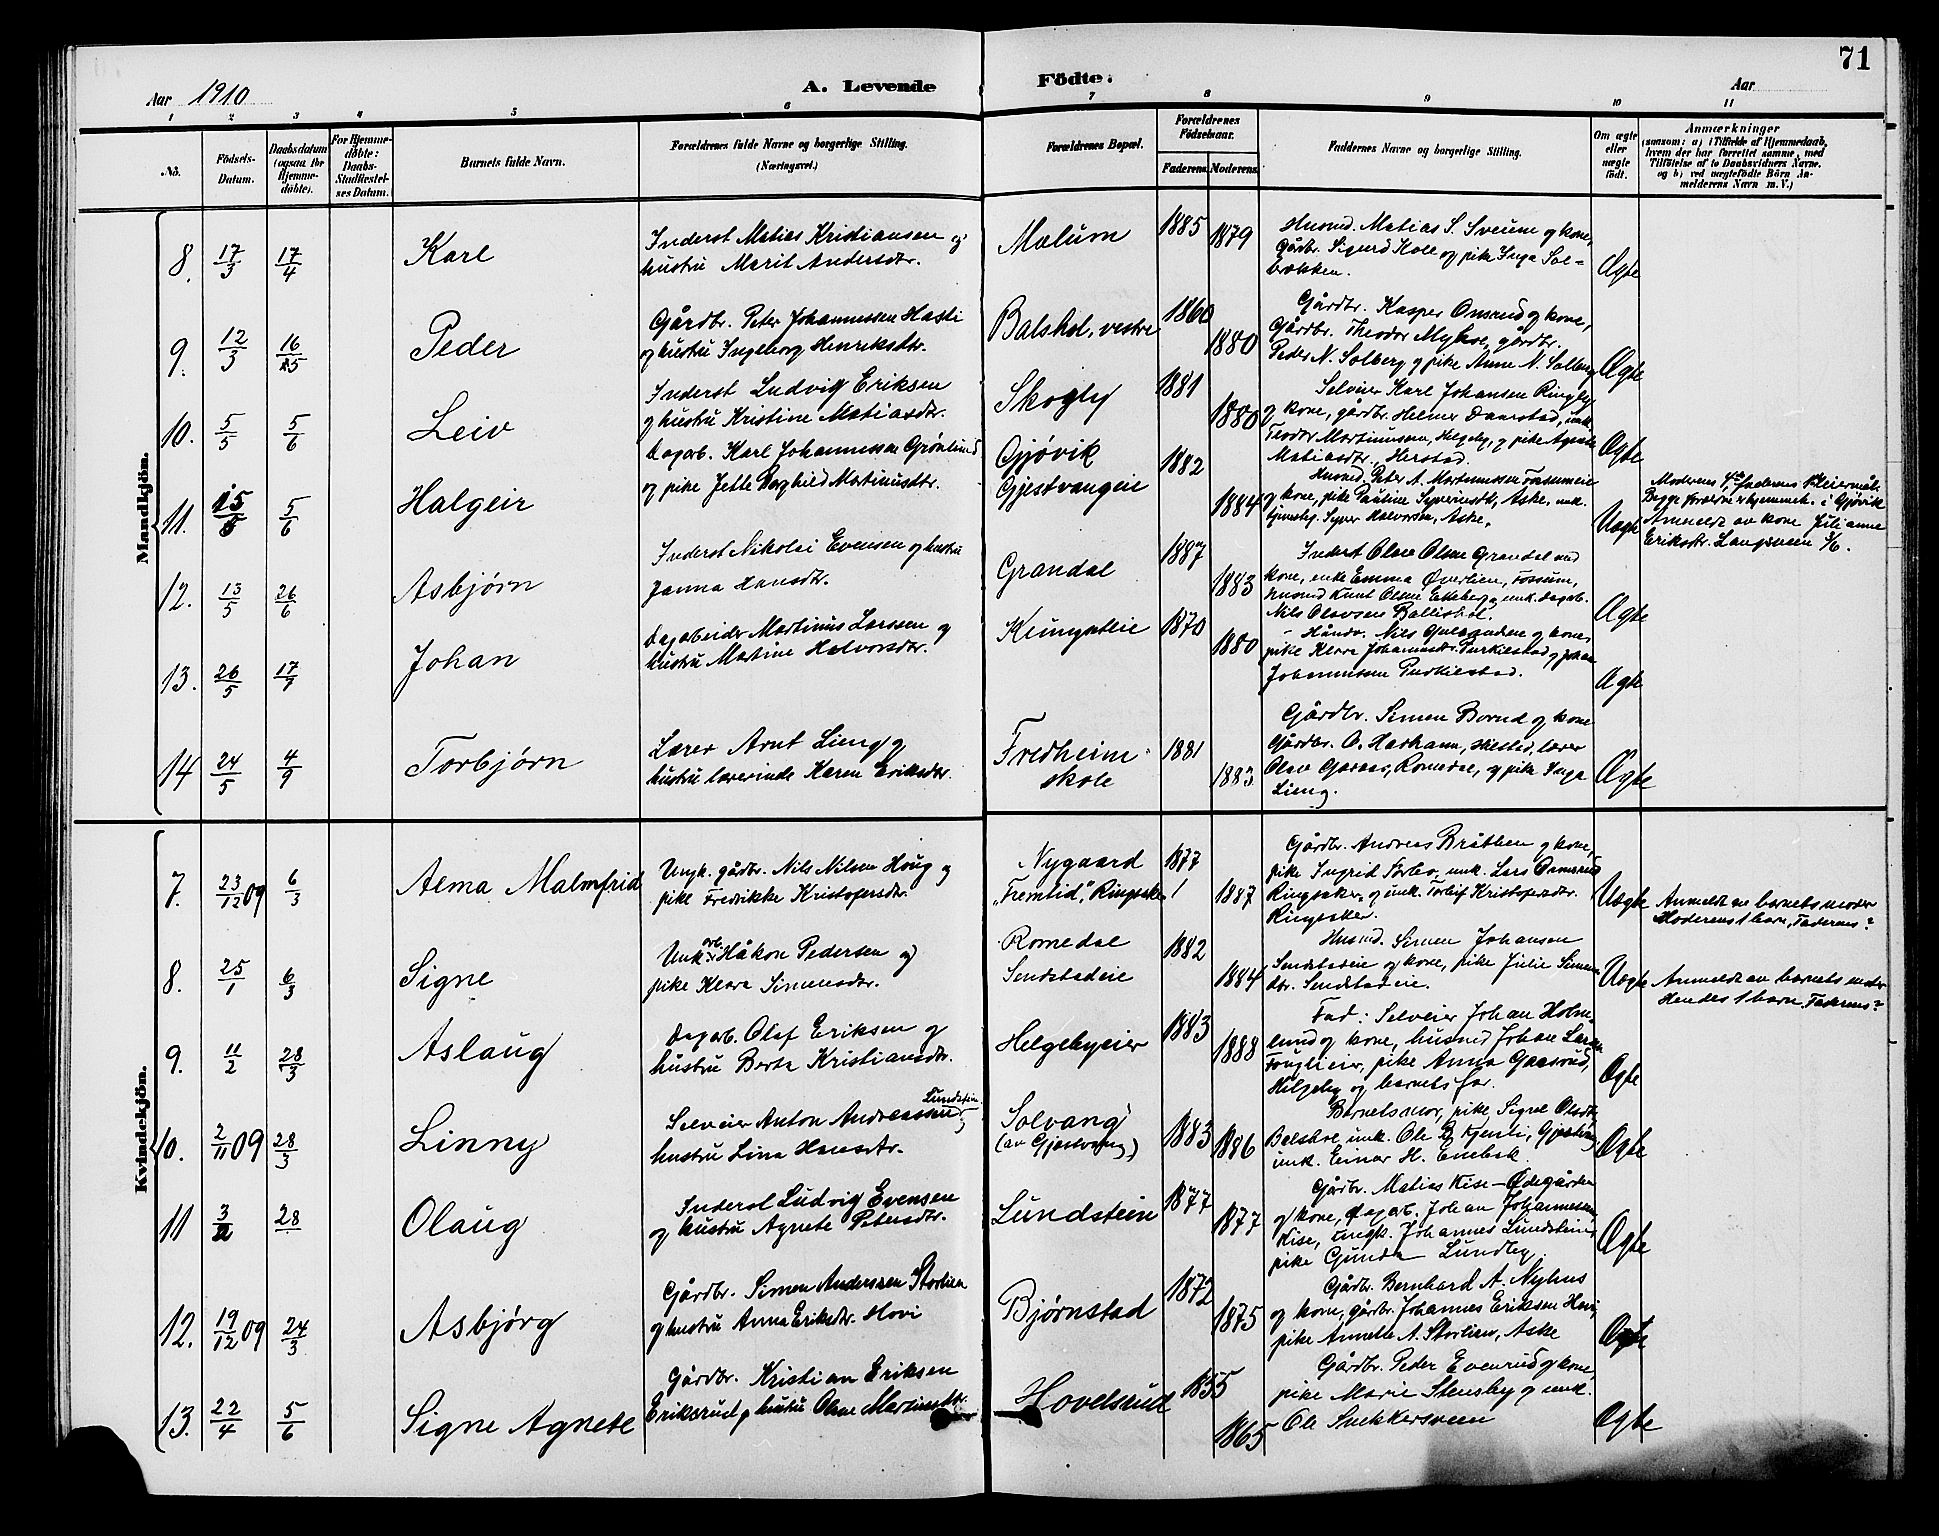 71
Aar 1910
A. Levende Födte.
Aar
1 2 3 4 5 6 7 8 9 10 11
No.
Födsels-Datum.
Daabsdatum (ogsaa for Hjemme-döbte).
For Hjemme-döbte: Daabs-Stadfæstel-ses Datum.
Barnets fulde Navn.
Forældrenes fulde Navne og borgerlige Stilling.
(Næringsvei.)
Forældrenes Bopæl.
Forældrenes Födselsaar.
Faderens. Moderens.
Faddernes Navne og borgerlige Stilling.
Om ægte eller uægte födt.
Anmærkninger
(saasom: a) i Tilfælde af Hjemmedaab, hvem der har forrettet samme, med Tilföielse af to Daabsvidners Navne, og b) ved uægtefödte Börn An-melderens Navn m. V.)
Mandkjön.
8. 17/3 17/4 Karl
Inderst Matias Kristiansen og
hustru Marit Andersdtr.
Mælum 1885 1879
Husmd. Matias S. Sveum og kone,
Gårbr. Sigurd Hole og pike Inga Sol=
brækken.
Ægte
9. 12/3 16/5 Peder
Gårdbr. Peter Johannessen Hasli
og hustru Ingeborg Henriksdtr.
Balshol, vestre 1860 1880
Gårdbr. Kasper Onsrud og kone,
Gårdbr. Theodor Myhre, gårdbr.
Peder N. Solberg og pike Anne N. Solberg
Ægte
10. 5/5 5/6 Leiv
Inderst Ludvig Eriksen
og hustru Kristine Matiasdtr.
Skogly 1881 1880
Selveier Karl Johansen Ringby
og kone, gårdbr. Helmer Daarstad, unk.
Teodor Martinussen, Helgeby, og pike Agnete
Matiasdtr. Herstad.
Ægte
11. 15/5 5/6 Halgeir
Dagarb. Karl Johannessen Grönlund
og pike Jette Daghild Martinusdtr.
Gjøvik
Gjestvangeie 1882 1884
Husmd. Peter A. Martinussen Fossumeie
og kone, pike Pauline Syverinsdtr, Aske, unk.
Syver Halvorsen, Aske.
Uægte
Moderens 4de faderens leiermål.
i Gjøvik
Anmeldt av kone Julianne
Eriksdtr. 5/6.
12. 13/5 26/6 Asbjørn
Inderst Nikolai Evensen og hustru
Janna Hansdtr.
Grandal 1887 1883
Inderst Olav Olsen Grandal og
kone, enke Emma Øverlien, Fossum,
husmd Knut Olsen og unk. dagarb.
Nils Olavsen Ballishol.
Ægte
13. 26/5 17/7 Johan
Dagarbeider Martinus Larssen og
hustru Matine Halvorsdtr.
1870 1880
Nils og kone,
pike Klara Johannesdtr. Purkilestad og Johan
Johannessen Purkilestad.
Ægte
14 24/5 4/9 Torbjørn
Lærer Arnt Lieng og
hustru lærerinde Karen Eriksdtr.
Fredheim
skole 1881 1883
Gårdbr. Simen Borud og kone
Gårdbr. O. lærer
Olav Romedal, og pike Inga
Lieng.
Ægte
Kvindekjön.
7. 23/12 09 6/3 Alma Malmfrid
Ungk. gårdbr. Nils Nilsen Houg og
pike Fredrikke Kristofersdtr.
Nygaard
"Fremtid", Ringsaker 1877 1887
Gårdbr. Andreas Bråthen og kone,
pike Ingrid unk. Lars Onsrud
Ringsaker og unk. Torleif Kristofersdtr.
Ringsaker.
Uægte
Anmeldt av barnets moder
Moderens 1 barn, Faderens?
8. 25/1 6/3 Signe
Unk. arb. Håkon Pedersen og
pike Klara Simensdtr.
Romedal
Sendstadeie 1882 1884
Husmd. Simen Johansen
Sendstadeie og kone, pike Julie Simens
dtr. Sendstadeie.
Uægte
Anmeldt av barnets moder
Hendes 1 barn, Faderens?
9. 11/2 28/3 Aslaug
Dagarb. Olaf Eriksen og
hustru Berta Kristiansdtr.
Helgebyeier 1883 1888
Fad: Selveier Johan Holm=
lund og kone, husmd Johan Larsen
pike Anna Gaasrud,
Helgeby og barnets far.
Ægte
10. 2/11 09 28/3 Linny
Selveier Anton Andreassen Lundstein og
hustru Lina Hansdtr.
Solvang
(av Gjestvang) 1883 1886
Barnets mor, pike, Signe Olsdtr
Balshol, unk. Ole
unk. Einar H. Enebak.
Ægte
11 3/2 28 Olaug
Inderst Ludvig Evensen
og hustru Agnete Petersdtr.
Lundstein 1877 1877
Gårdbr. Matias Kise-Ødegården
og kone, dagarb. Johan Johannessen
Kise, ungk. Johannes Lundstein,
pike Gunda Lundby.
Ægte
12. 19/12 09 24/3 Asbjørg
Gårdbr. Simen Anderssen Storlien
og hustru Anna Eriksdtr. Hovi
Bjørnstad 1872 1875
Gårdbr. Bernhard A. Nyhus
og kone, gårdbr. Johannes Eriksen Hovi,
pike Annette A. Storlien, Aske
Ægte
13. 22/4 5/6 Signe Agnete
Gårdbr. Kristian Eriksen
Eriksrud og hustru Oline Martinusdtr.
Hovelsrud 1855 1865
Gårdbr. Peder Evenrud og kone,
pike Marie Stensby og unk.
Ole Snekkersveen
Ægte